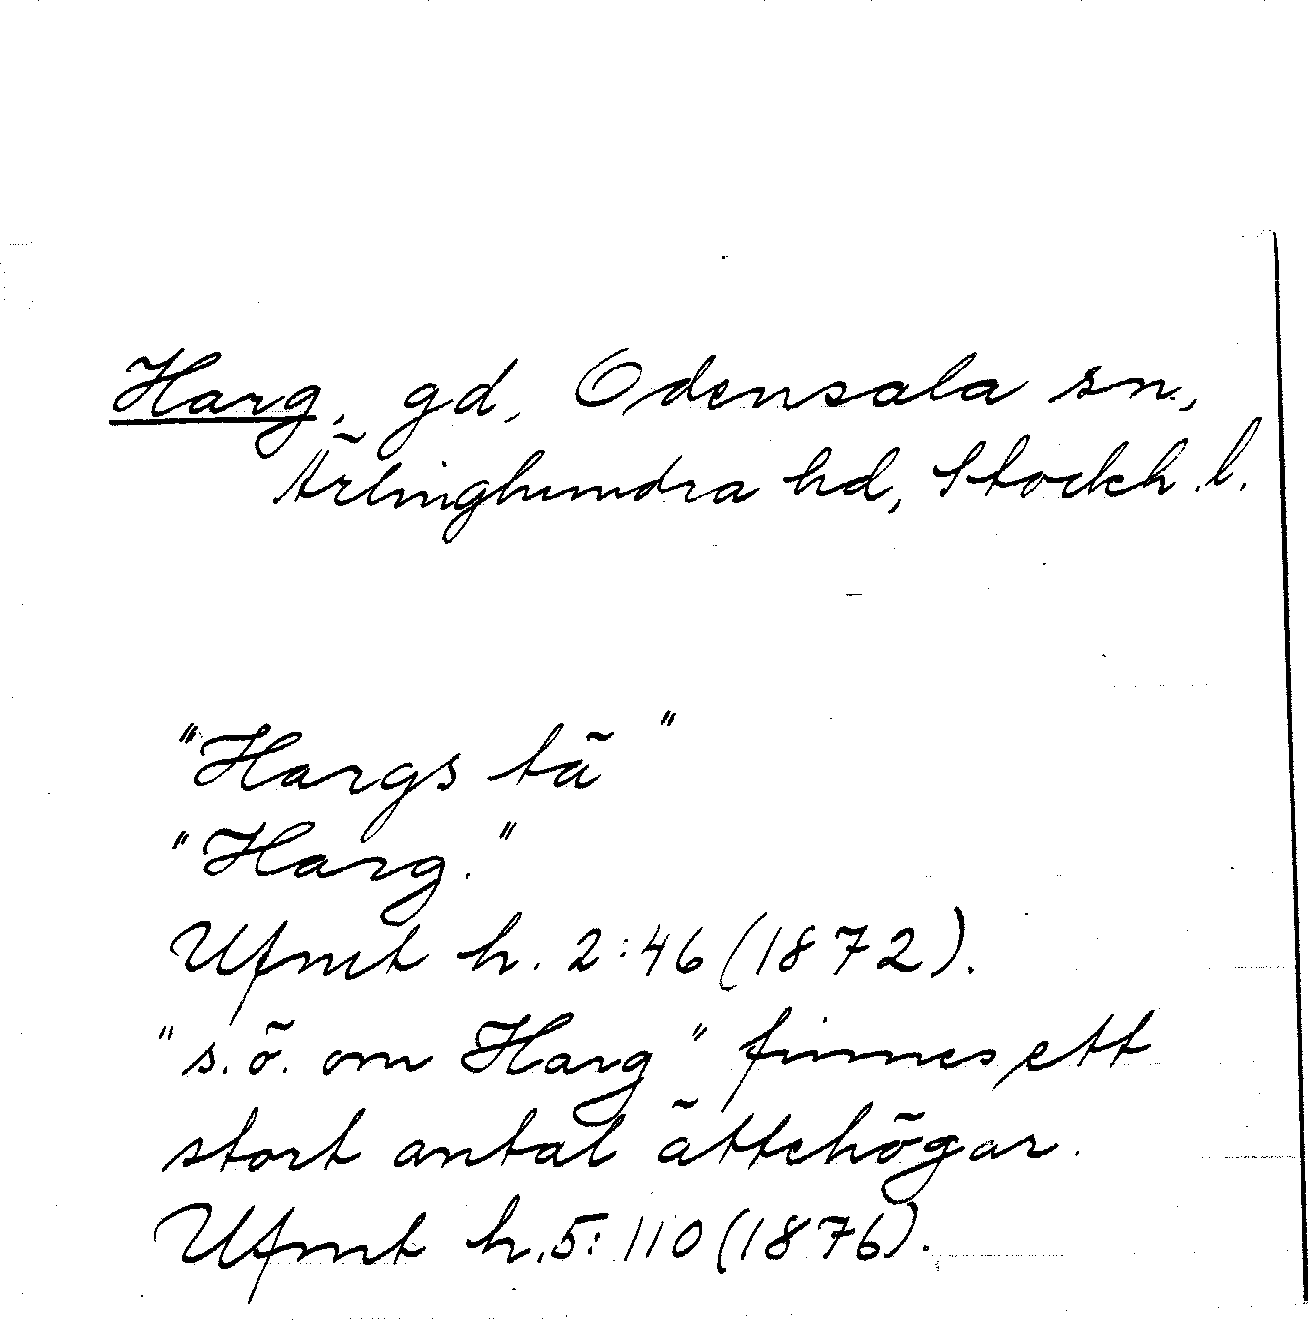 Harg, gd, Odensala sn.,
Ärlinghundra hd, Stockh.l.
"Hargs tä"
"Harg."
Ufmt h. 2:46 (1872).
"s.ö. om Harg" finnes ett
stort antal ättehögar.
Ufmt h. 5:110 (1876).